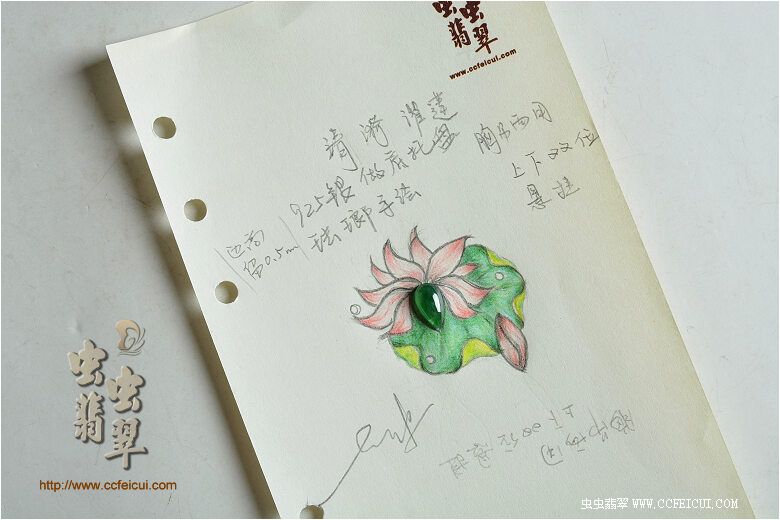 虫虫
翡翠
www.ccfeicui.com
清漪濯莲
胸吊两用
925银做底托盘
上下双位
悬挂
珐琅手绘
边高
留0.5m
虫虫
翡翠
http://www.ccfeicui.com
虫虫翡翠 WWW.CCFEICUI.COM